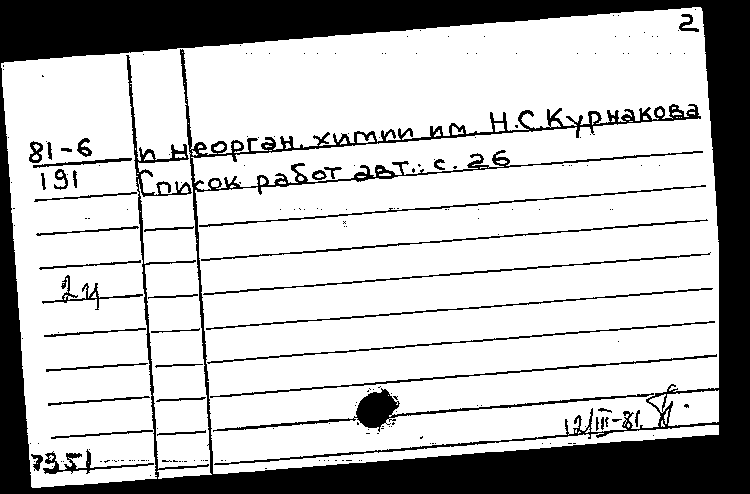 2
81-6 и неорган. химии им. Н.С.Курнакова
191 Список работ авт.: с. 26
2ц
12/III-81.
7351